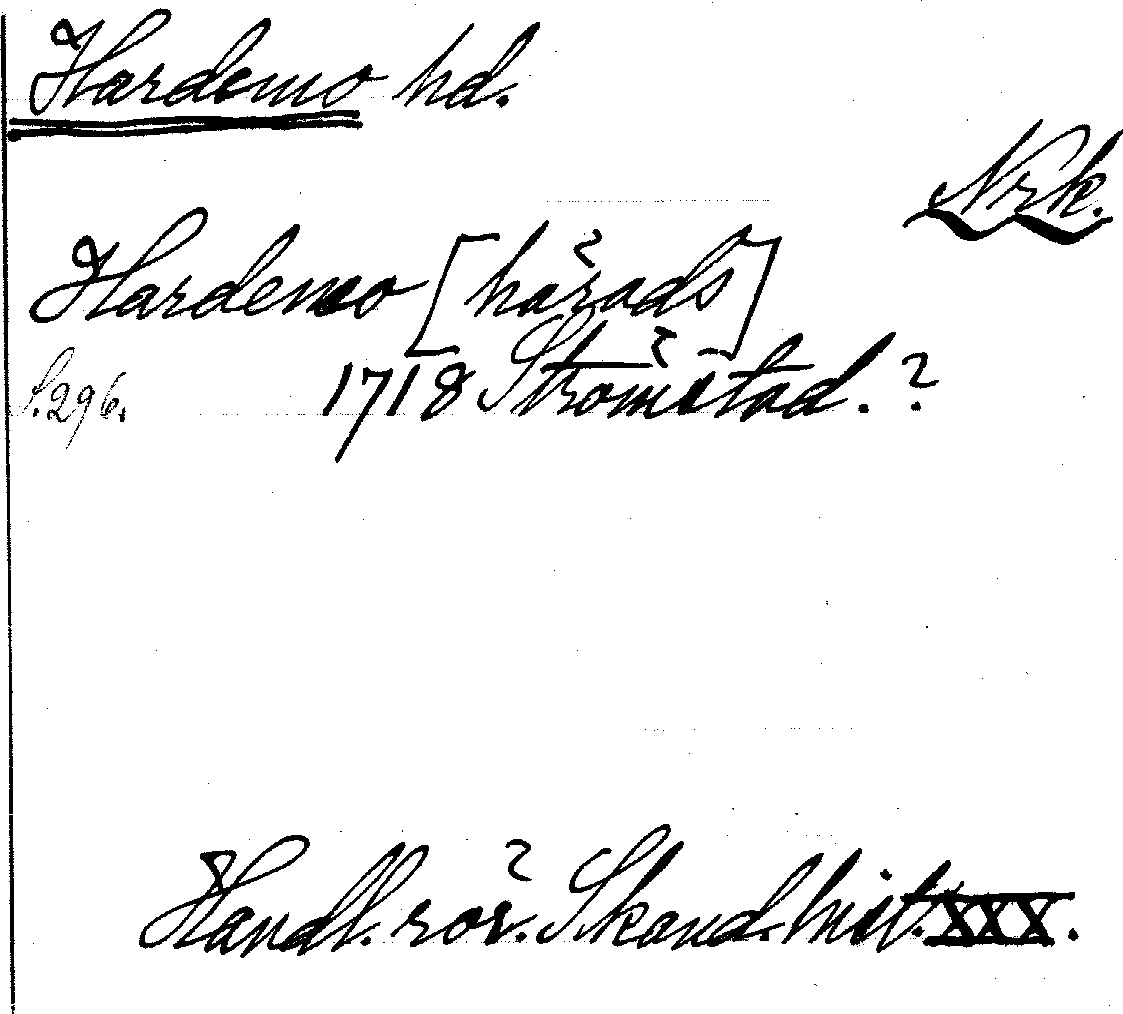 Hardemo hd.
Nrk.
Hardemo [härads]
S. 296. 1718 Strömstad. ?
Handl. rör. Skand. hist. XXX.